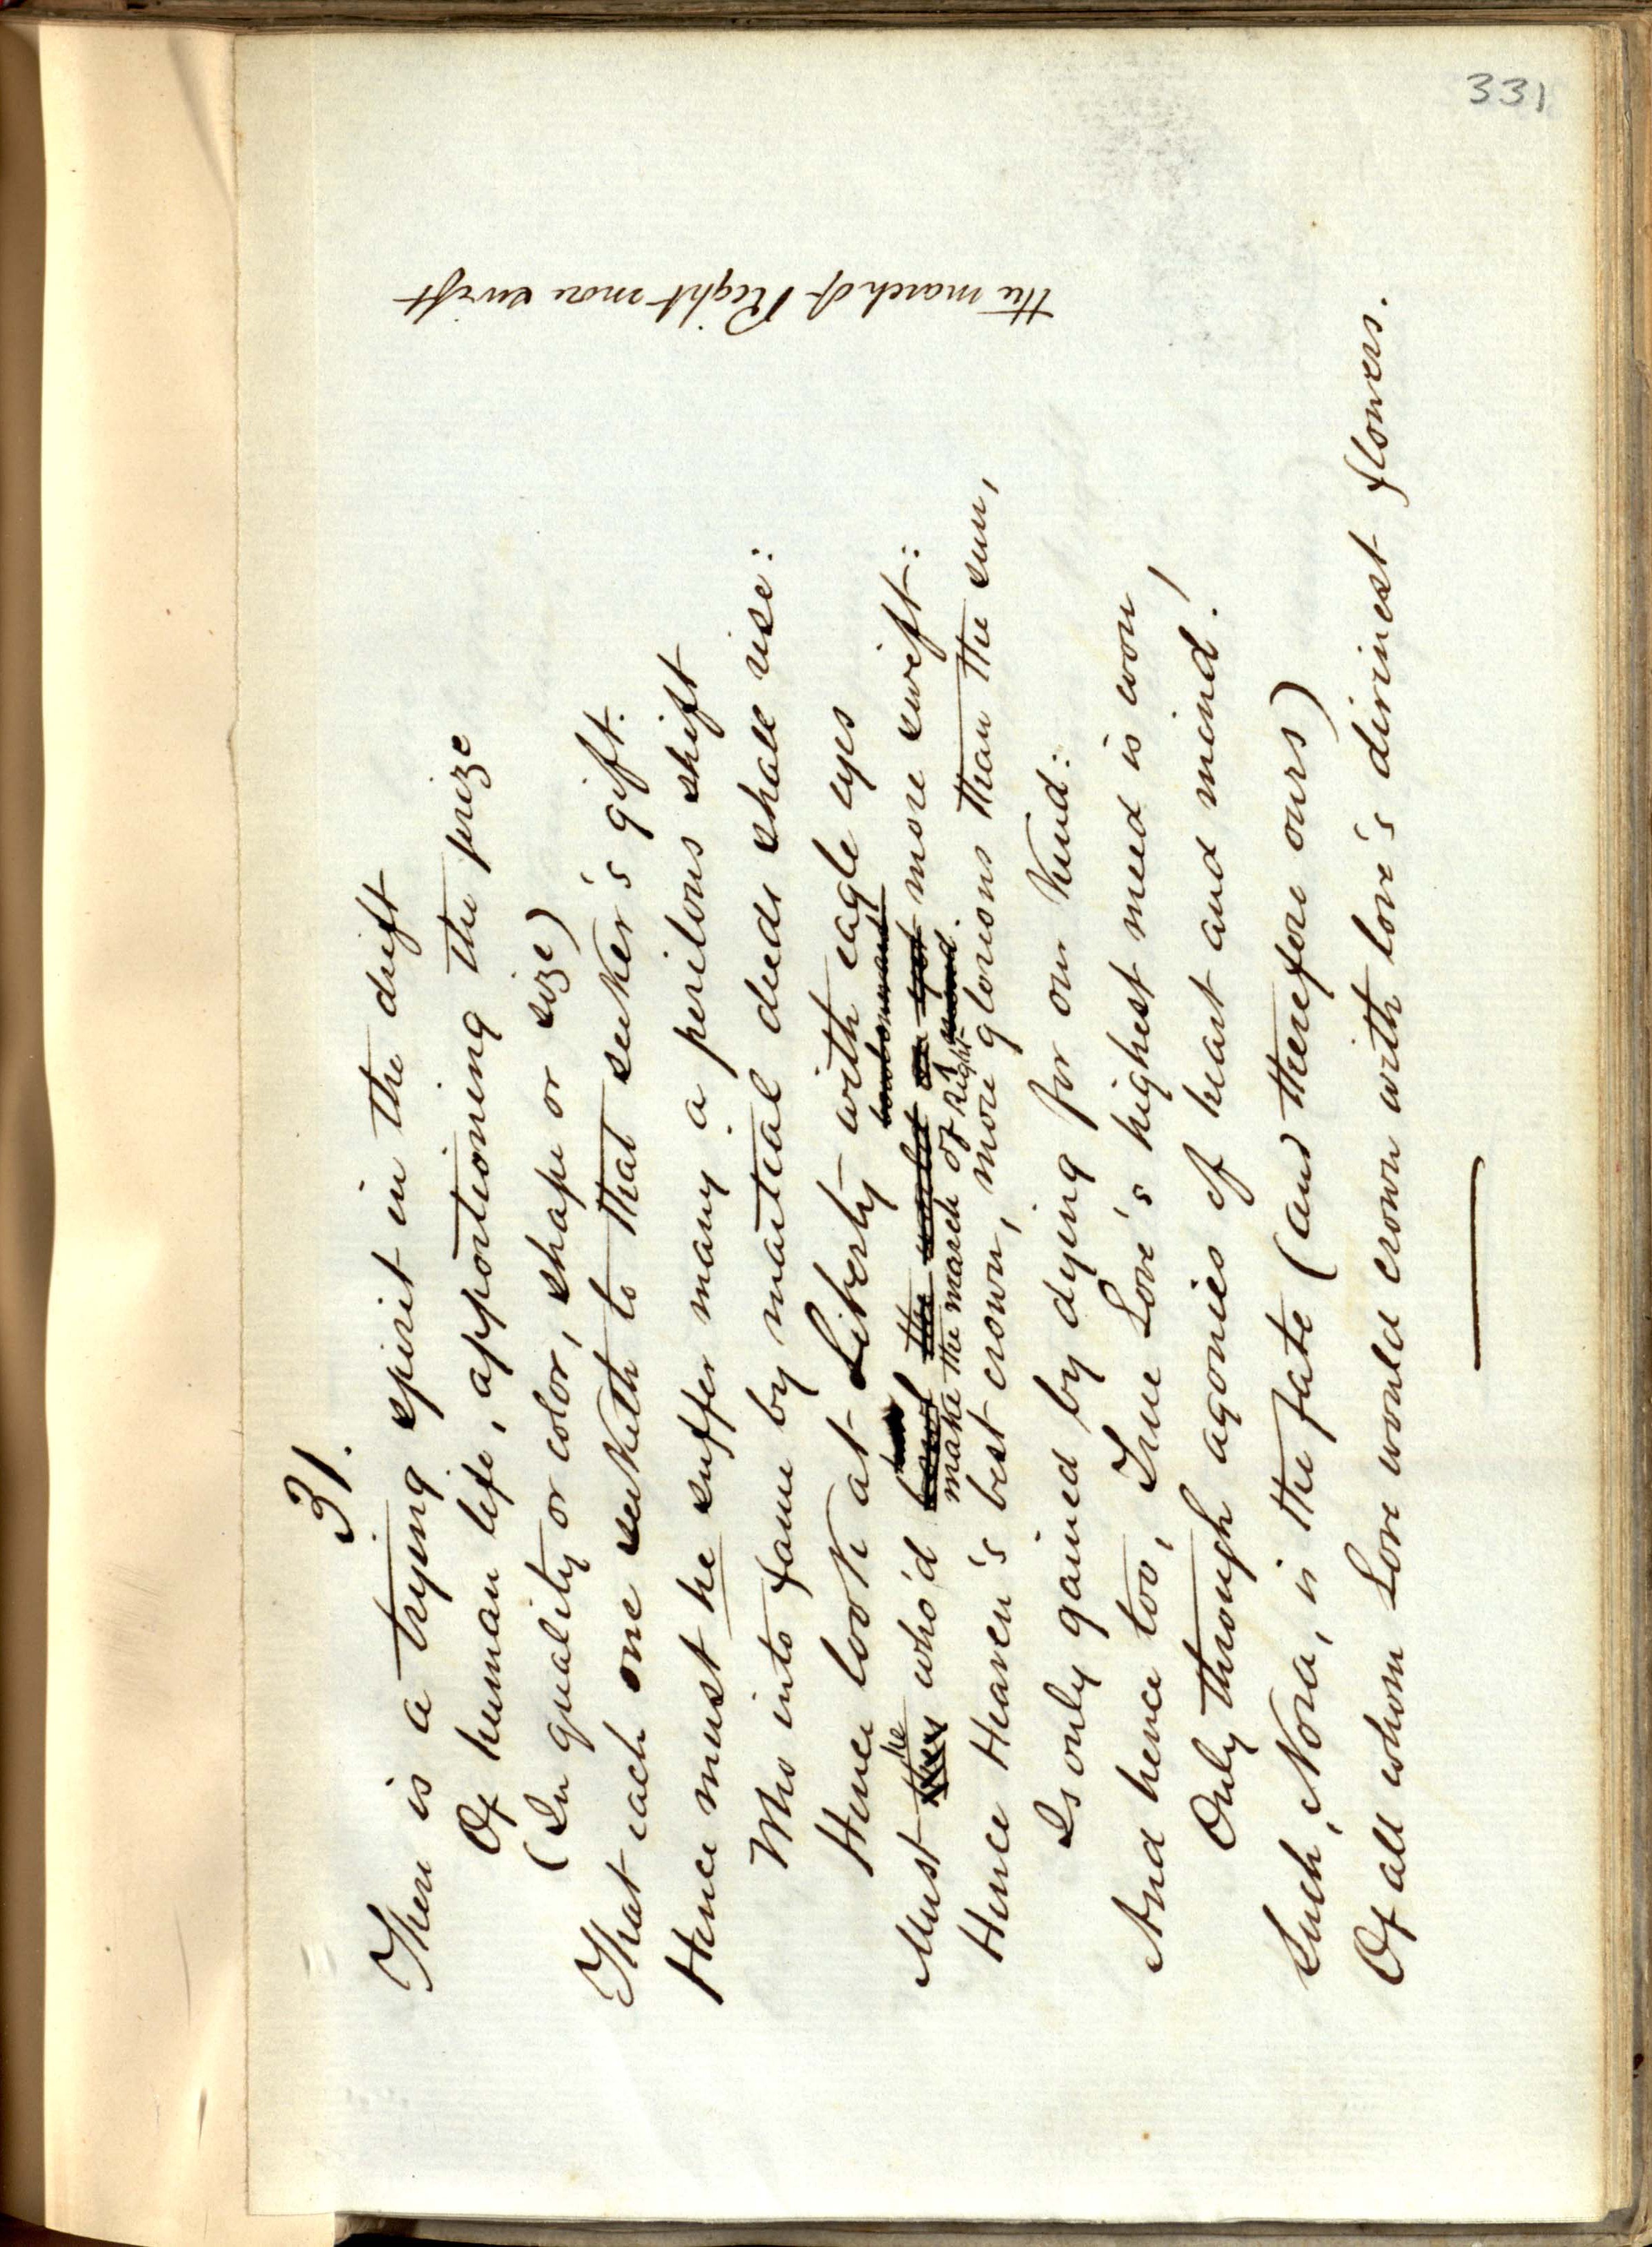 331
31.
There is a trying spirit in the drift
Of human life, apportioning the prize
(In quality or color, shape or size)
That each one seeketh to that seeker's gift.
Hence must he suffer many a perilous shift
Who into fame by martial deeds shall rise:
Hence look at Liberty with eagle eyes
Must he who'd make the march of Right more swift:
Hence Heaven's best crown, more glorious than the sun,
Is only gained by dying for our kind:
And hence too, True Love's highest meed is won
Only through agonies of heart and mind!
Such, Nora, is the fate (and therefore ours)
Of all whom Love would crown with love's divinest flowers.
the march of Right more swift